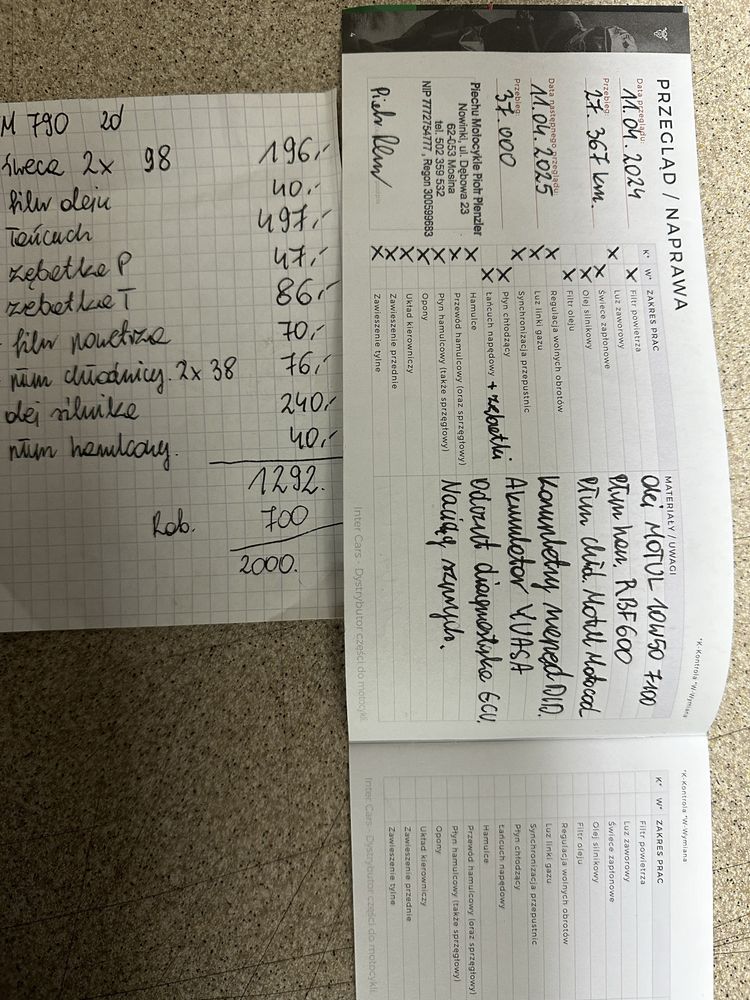 M 790 2d
świeca 2x 98 196,-
filtr oleju 40,-
Łańcuch 497,-
zębatka P 47,-
zębatka T 86,-
filtr powietrza 70,-
płyn chłodnicy. 2x38 76,-
olej silnika 240,-
płyn hamulcowy. 40,-
1292.
Rob. 700
2000.
PRZEGLĄD / NAPRAWA
Data przeglądu
11.04.2024
Przebieg
27.367 km.
Data następnego przeglądu
11.04.2025
Przebieg
37.000
Piechu Motocykle Piotr Pienzler
Nowinki, ul. Dębowa 23
62-053 Mosina
tel. 502 359 532
NIP 7772754777, Regon 300599683
K* W* ZAKRES PRAC
X Filtr powietrza
X Luz zaworowy
X Świece zapłonowe
X Olej silnikowy
X Filtr oleju
X Regulacja wolnych obrotów
X Luz linki gazu
X Synchronizacja przepustnic
X Płyn chłodzący
X Łańcuch napędowy + zębatki
X Hamulce
X Przewód hamulcowy (oraz sprzęgłowy)
X Płyn hamulcowy (także sprzęgłowy)
X Opony
X Układ kierowniczy
X Zawieszenie przednie
X Zawieszenie tylne
MATERIAŁY / UWAGI
Olej MOTUL 10W50 7100
Płyn ham. RBF600
Płyn chłd. Motul Motocool
Kompletny napęd DID.
Akumulator YUASA
Odczyt diagnostyka ECU.
Inter Cars - Dystrybutor części do motocykli.
*K-Kontrola *W-Wymiana
*K-Kontrola *W-Wymiana
K* W* ZAKRES PRAC
Filtr powietrza
Luz zaworowy
Świece zapłonowe
Olej silnikowy
Filtr oleju
Regulacja wolnych obrotów
Luz linki gazu
Synchronizacja przepustnic
Płyn chłodzący
Łańcuch napędowy
Hamulce
Przewód hamulcowy (oraz sprzęgłowy)
Płyn hamulcowy (także sprzęgłowy)
Opony
Układ kierowniczy
Zawieszenie przednie
Zawieszenie tylne
Inter Cars - Dystrybutor części do motocykli.